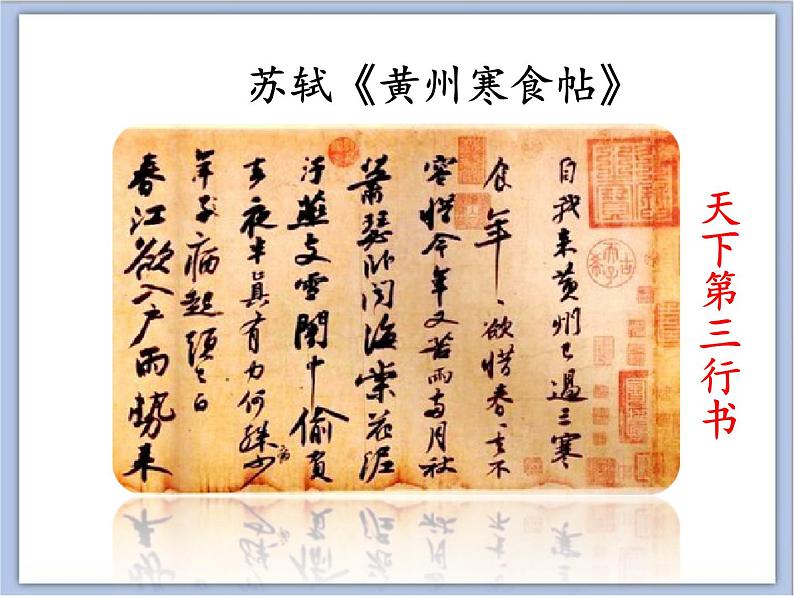 苏轼《黄州寒食帖》
自我来黄州已过三寒
食年〻欲惜春〻去不
容惜今年又苦雨两月秋
萧瑟卧闻海棠花泥
污燕支雪闇中偷负
去夜半真有力何殊少
年子病起头已白
春江欲入户雨势来
天下第三行书